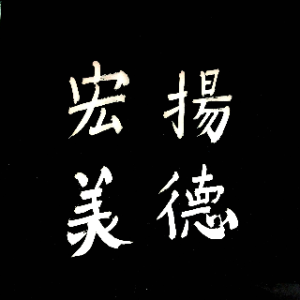 宏揚
美德